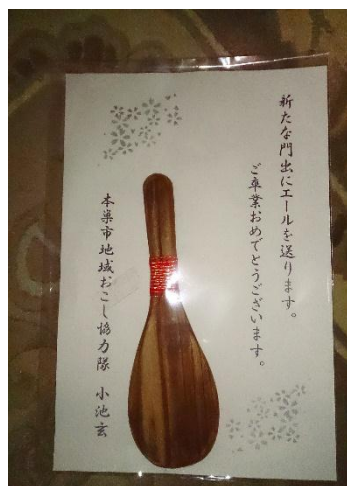 新たな門出にエールを送ります。
ご卒業おめでとうございます。
本巣市地域おこし協力隊 小池玄